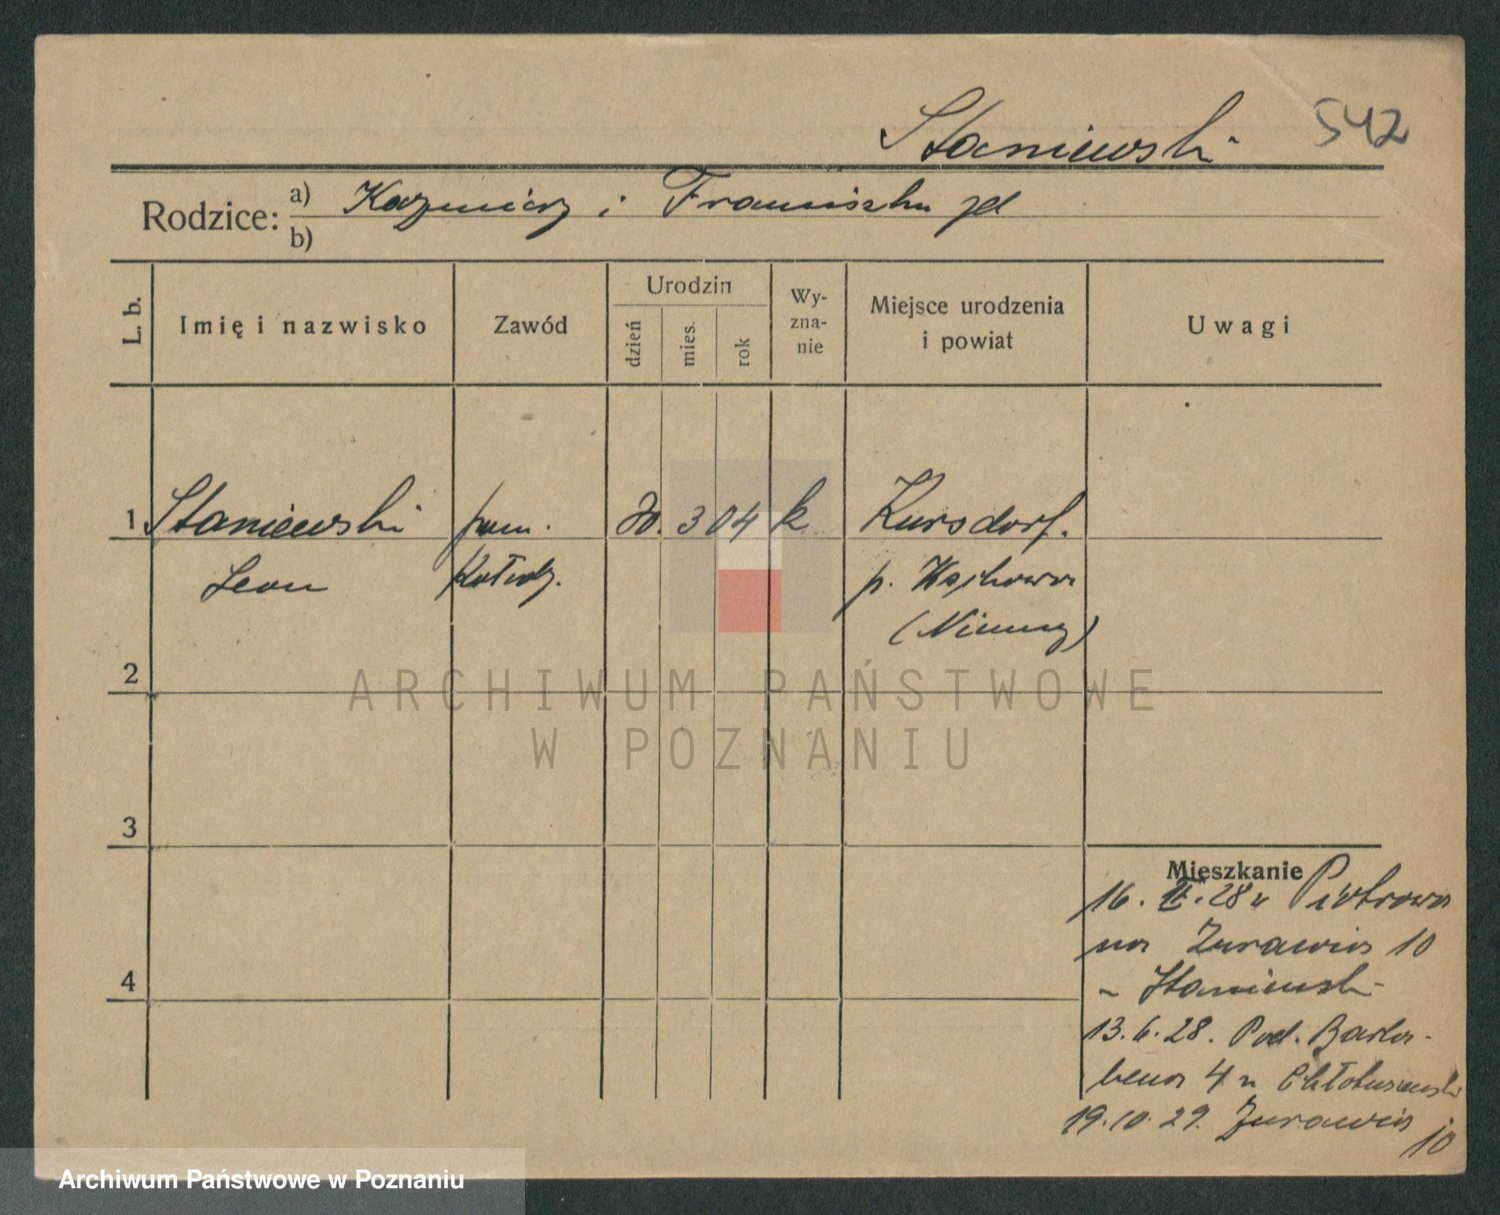 Staniewski 542
Rodzice: a) Kazmierz i Franciszka zd
b)
L. b. Imię i nazwisko Zawód Urodzin dzień mies. rok Wy-zna-nie Miejsce urodzenia i powiat Uwagi
1 Staniewski pom. 20. 3 04 k Kursdorf.
Leon Kołodz. p. Wschowa
(Niemcy)
2
ARCHIWUM PAŃSTWOWE
W POZNANIU
3
Mieszkanie
16. 28 Piotrowa
na Żurawia 10
Staniewsk
13.6.28. Pod. Barba-
bena 4
4
19.10.29. Żurawia 10
Archiwum Państwowe w Poznaniu